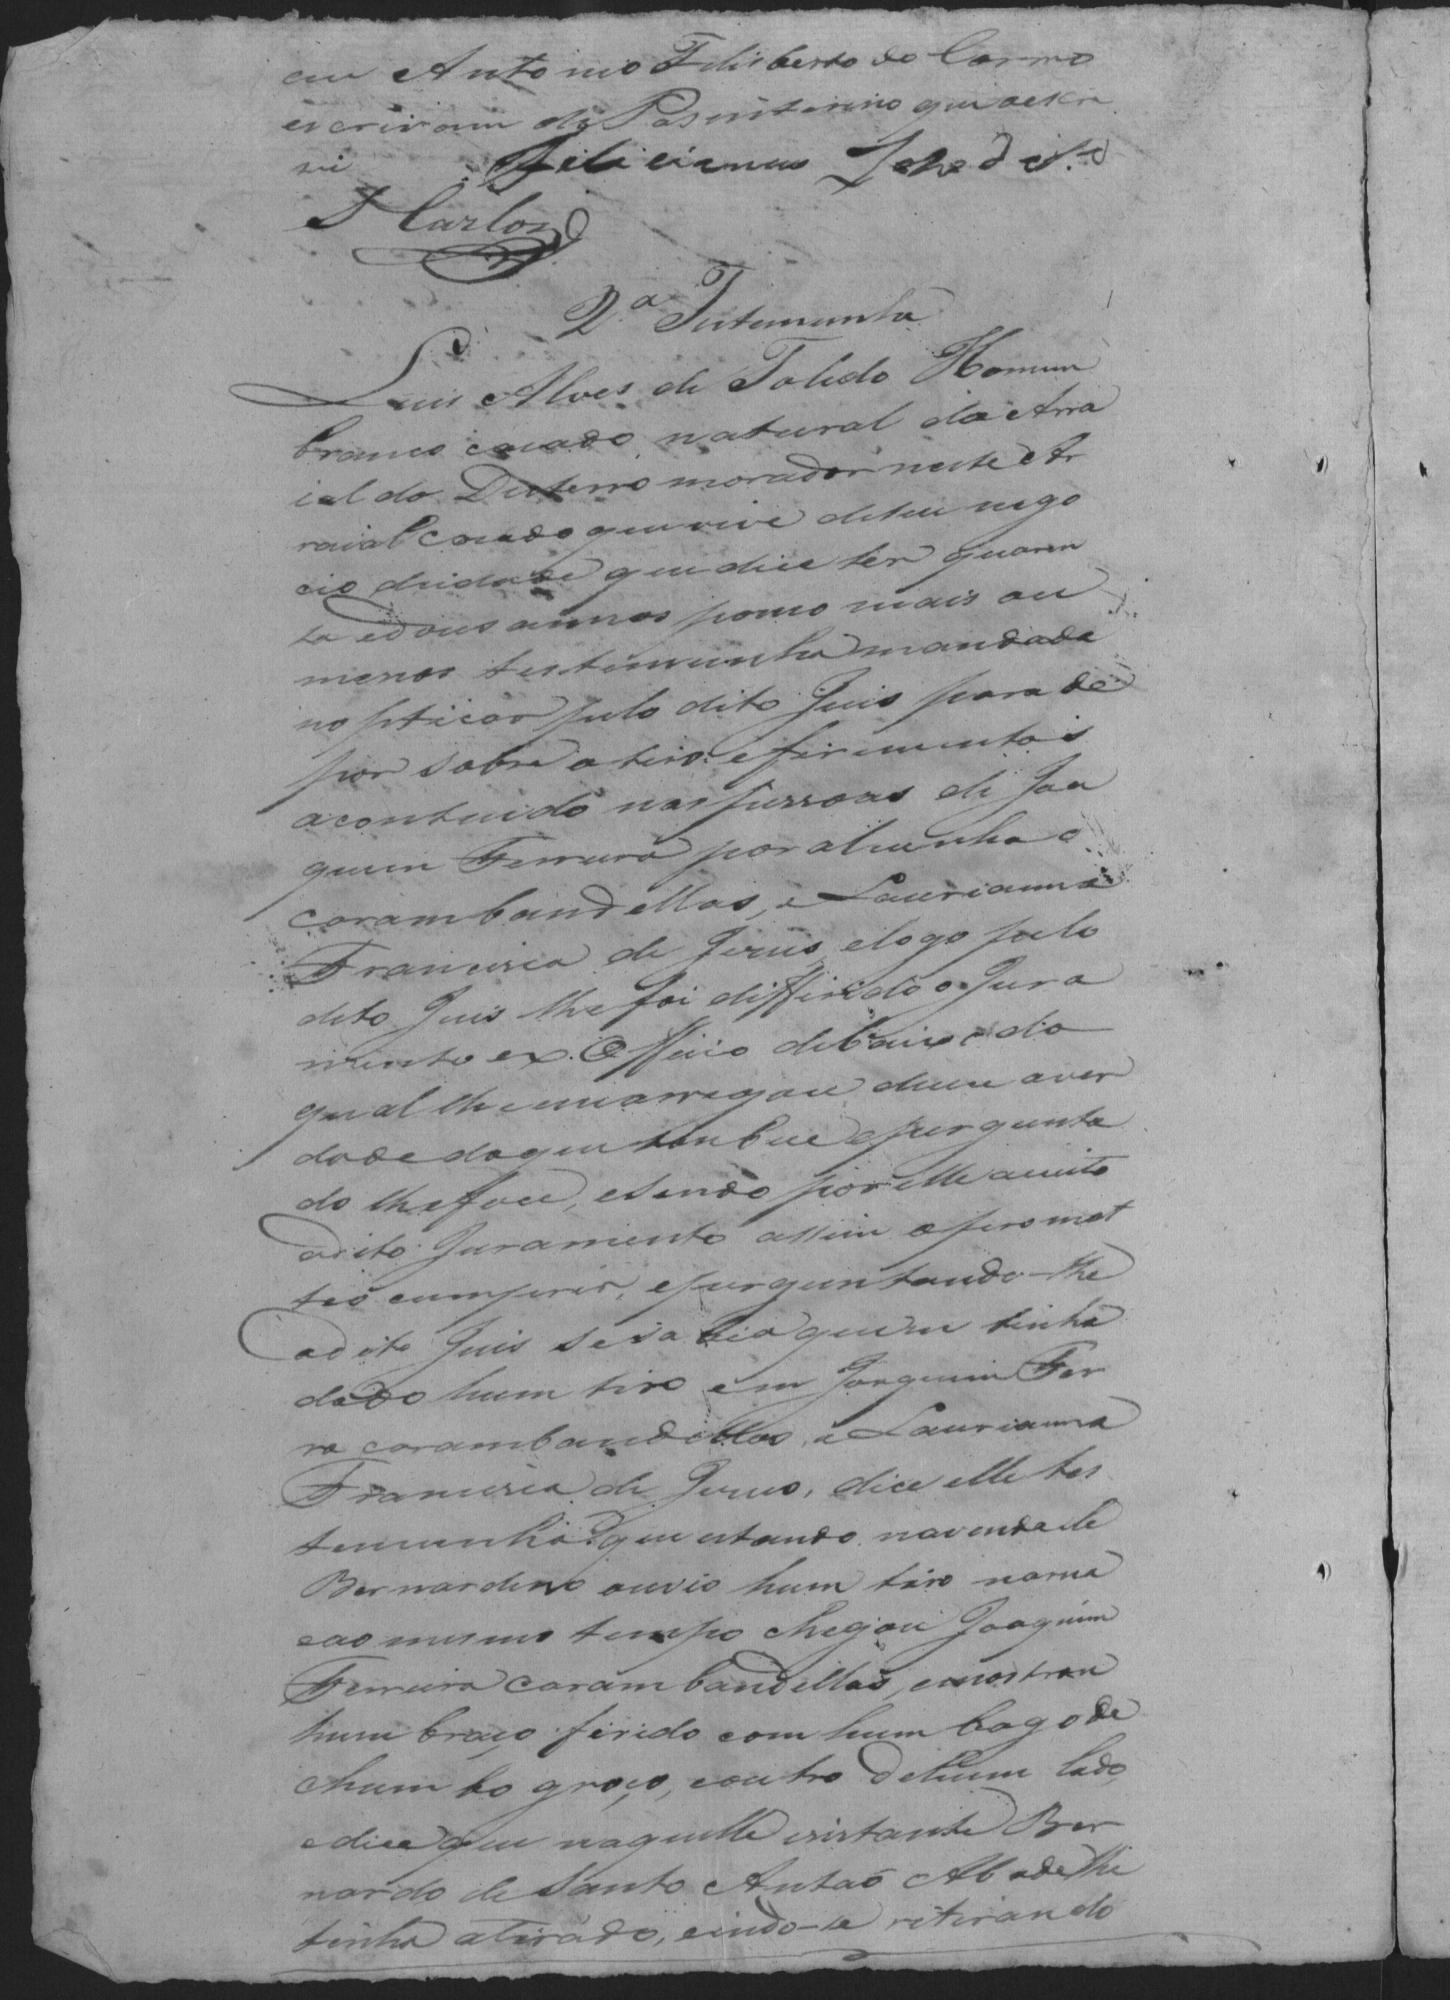 eu Antonio Felisberto do Carmo
escrivam da Pas interino que oescre
vi Feliciano José de
S Carlos
2.a Testemunha
Luis Alves de Toledo Homem
branco casado natural do Arra
ial do Disterro morador neste Ar
raial Casado que vive deseu nego
cio deidade que dice ter quaren
ta edous annos pouco mais ou
menos testemunha mandada
nopticar pelo dito Juis para de
por sobre o tiro eferimentos
acontecido nas pessoas de Joa
quim Ferreira por alcunha o
carambandellas, e Laurianna
Francisca de Jesus, elogo pelo
dito Juis lhe foi differido o Jura
mento ex Officio debaixo do
qual lhe encarregou dicece aver
dade doque soubece eperguntа
do lhe foce, esendo por elle aceito
odito Juramento assim o promet
teo cumprir, eperguntando-lhe
odito Juis sesabia quem tinha
dado hum tiro em Joaquim Fer
ra carambandellas, e Laurianna
Francisca de Jesus, dice elle tes
temunha que estando navenda de
Bernardino ouvio hum tiro narua
eao mesmo tempo chegou Joaquim
Ferreira carambandellas, emostrou
hum braço ferido com hum bago de
chumbo groço, eoutro dehum lado,
edice que naquelle instante Ber
nardo de Santo Antaõ Abade lhe
tinha atirado, eindo-se retirando